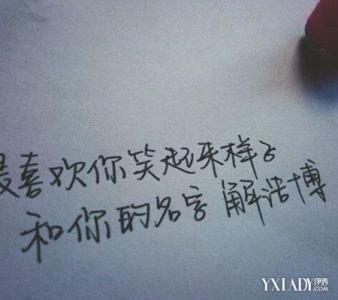 最喜欢你笑起来样子
和你的名字 解浩博
YXLADY伊秀
.COM